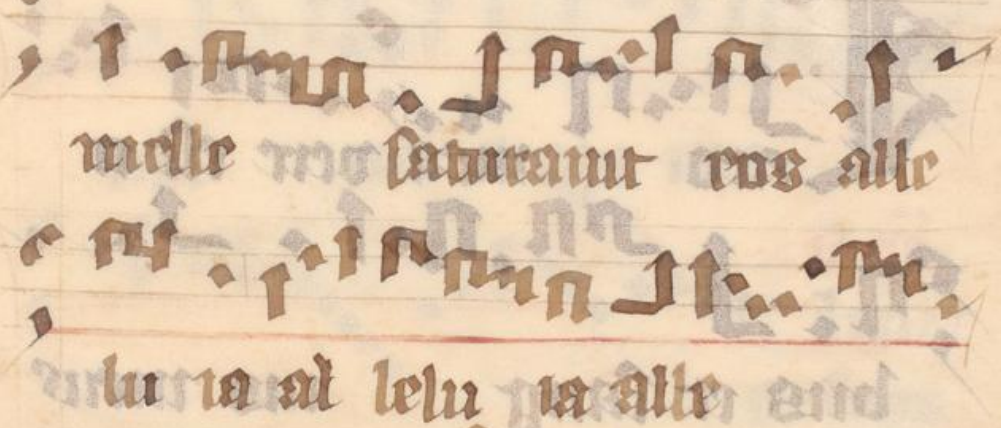 melle saturauit eos alle
lu ia al lelu ia alle